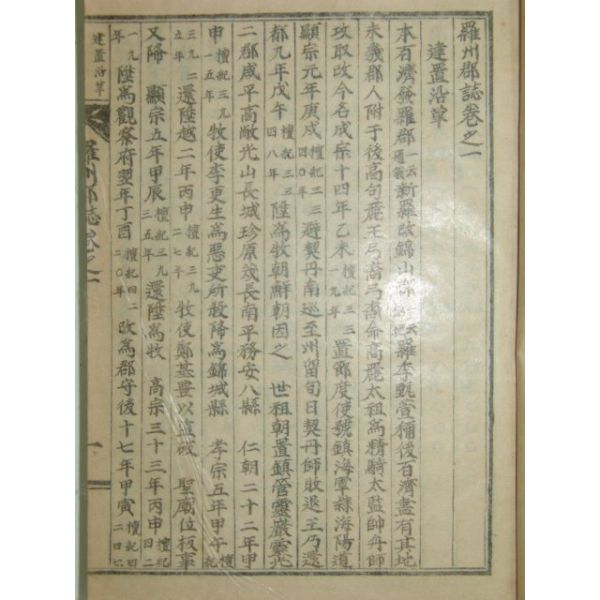 羅州郡誌卷之一
建置沿革
本百濟發羅郡一云通義新羅改錦山郡一云羅季甄萱稱後百濟盡有其地
未幾郡人附于後高句麗王弓裔弓裔命高麗太祖爲精騎太監帥舟師
攻取改今名成宗十四年乙未檀紀三三一九年置節度使號鎮海軍隸海陽道
顯宗元年庚戌檀紀三三四〇年避契丹南巡至州留旬日契丹師敗退王乃還
都九年戊午檀紀三三四八年陞爲牧朝鮮朝因之 世祖朝置鎮管靈巖靈光
二郡咸平高敞光山長城珍原茂長南平務安八縣 仁朝二十二年甲
申檀紀三九一五年牧使李更生爲惡吏所殺降爲錦城縣 孝宗五年甲午檀紀
三九二五年還陞越二年丙申檀紀三九二七年牧使鄭基豊以盜破 聖廟位板事
又降 顯宗五年甲辰檀紀三九三五年還陞爲牧 高宗三十三年丙申檀紀四二
一九年陞爲觀察府翌年丁酉檀紀四二二〇年改爲郡守後十七年甲寅檀紀四二四七
建置沿革
羅州郡誌卷之一
一